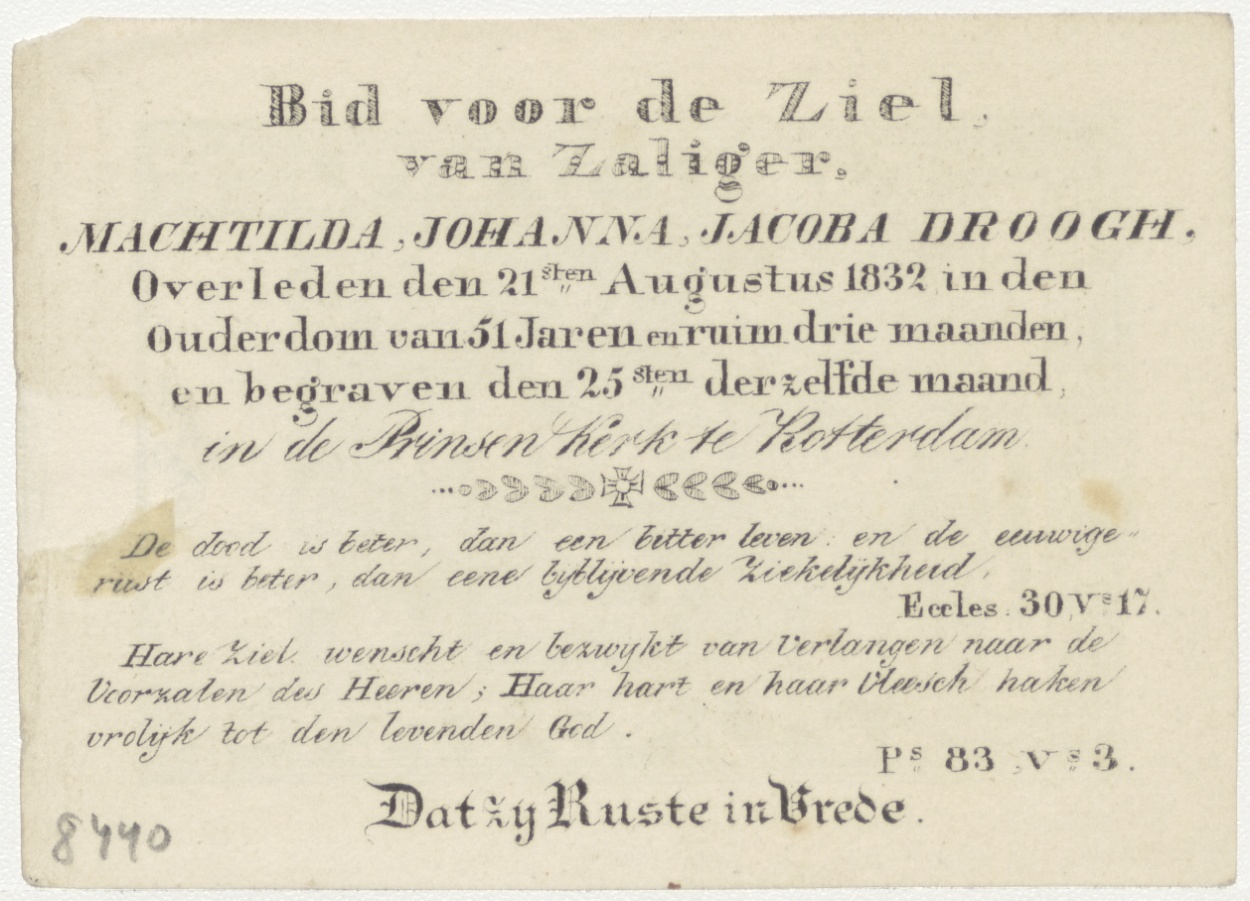 Bid voor de Ziel,
van Zaliger.
MACHTILDA, JOHANNA, JACOBA DROOGH.
Overleden den 21sten Augustus 1832 in den
Ouderdom van 51 Jaren en ruim drie maanden,
en begraven den 25sten derzelfde maand,
in de Prinsen Kerk te Rotterdam.
De dood is beter, dan een bitter leven: en de eeuwige=
rust is beter, dan eene byblijvende Ziekelijkheid.
Eccles. 30, Vs 17.
Hare Ziel wenscht en bezwykt van Verlangen naar de
Voorzalen des Heeren; Haar hart en haar Vleesch haken
vrolijk tot den levenden God.
Ps 83, Vs 3.
Dat zy Ruste in Vrede.
8440